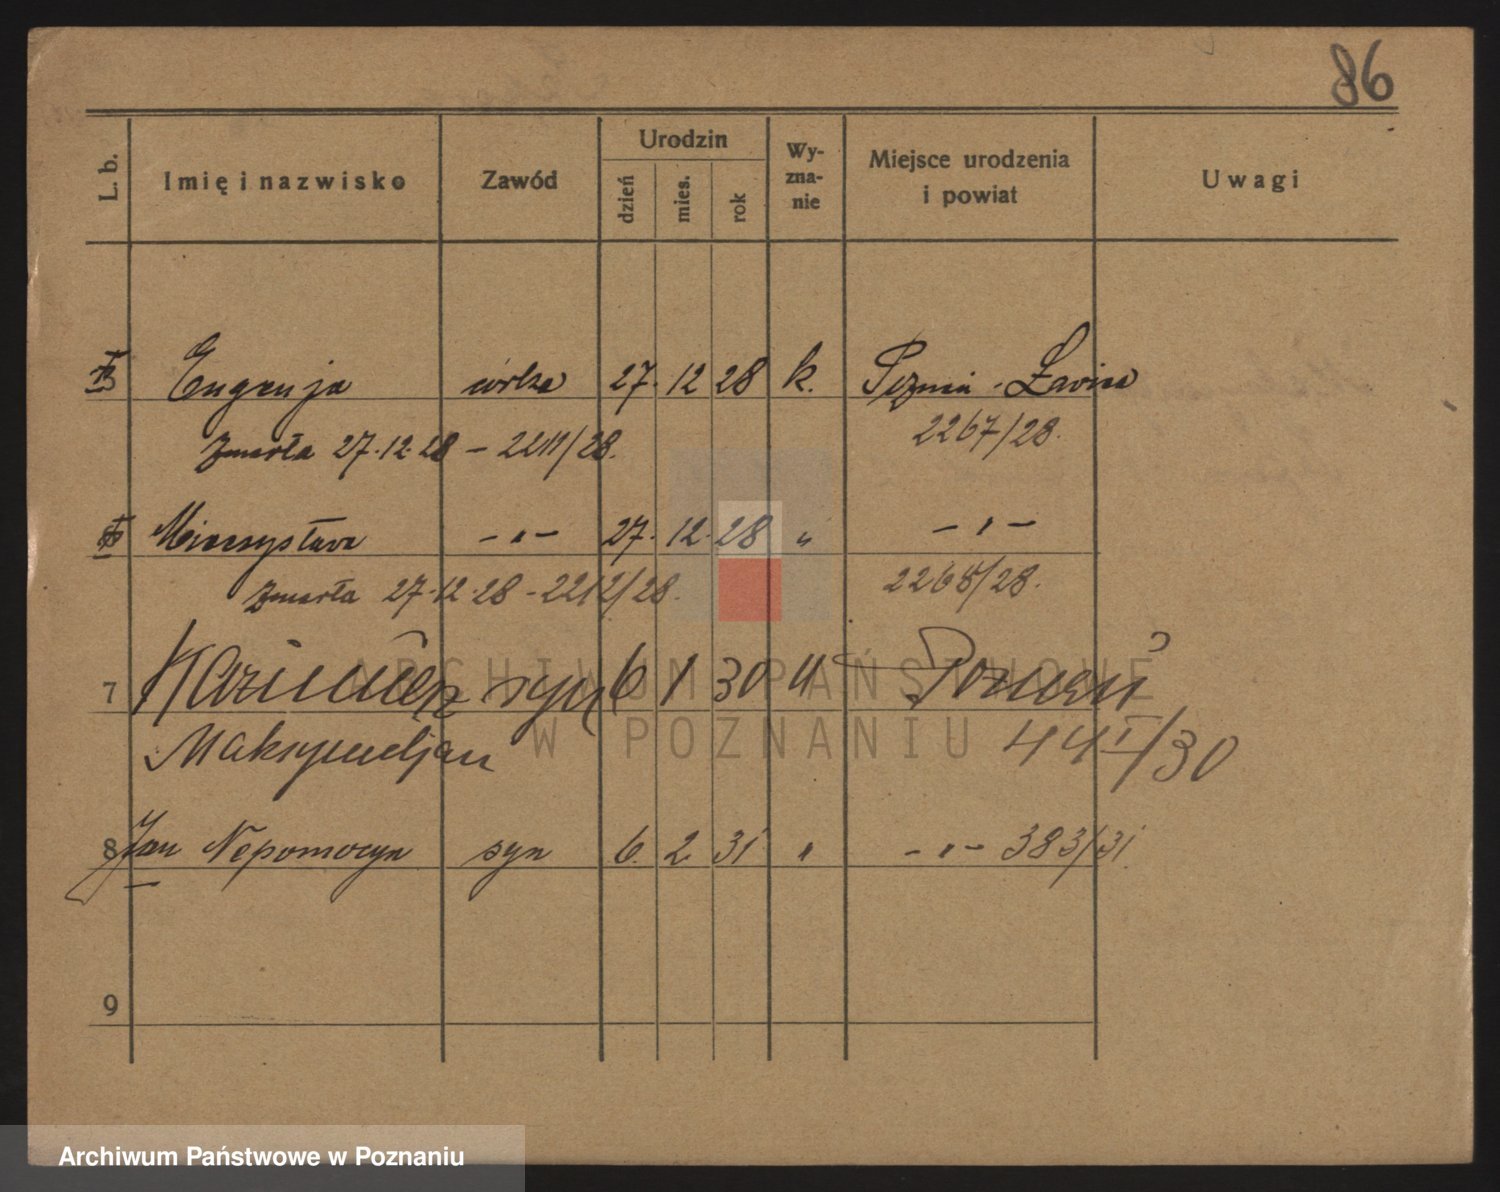 86
L. b. Imię i nazwisko Zawód Urodzin dzień mies. rok Wy-zna-nie Miejsce urodzenia i powiat Uwagi
5 Eugenja córka 27. 12 28 k. Poznań - Ławica
zmarła 27.12.28 – 2211/28. 2267/28.
6 Mieczysława – " – 27. 12. 28 " – " –
zmarła 27.12.28 - 2212/28. 2268/28.
7 Kazimierz syn 6 1 30 " Poznań
Maksymiljan 44 I/30
8 Jan Nepomocyn syn 6. 2 31 " – " – 383/31
9
ARCHIWUM PAŃSTWOWE
W POZNANIU
Archiwum Państwowe w Poznaniu